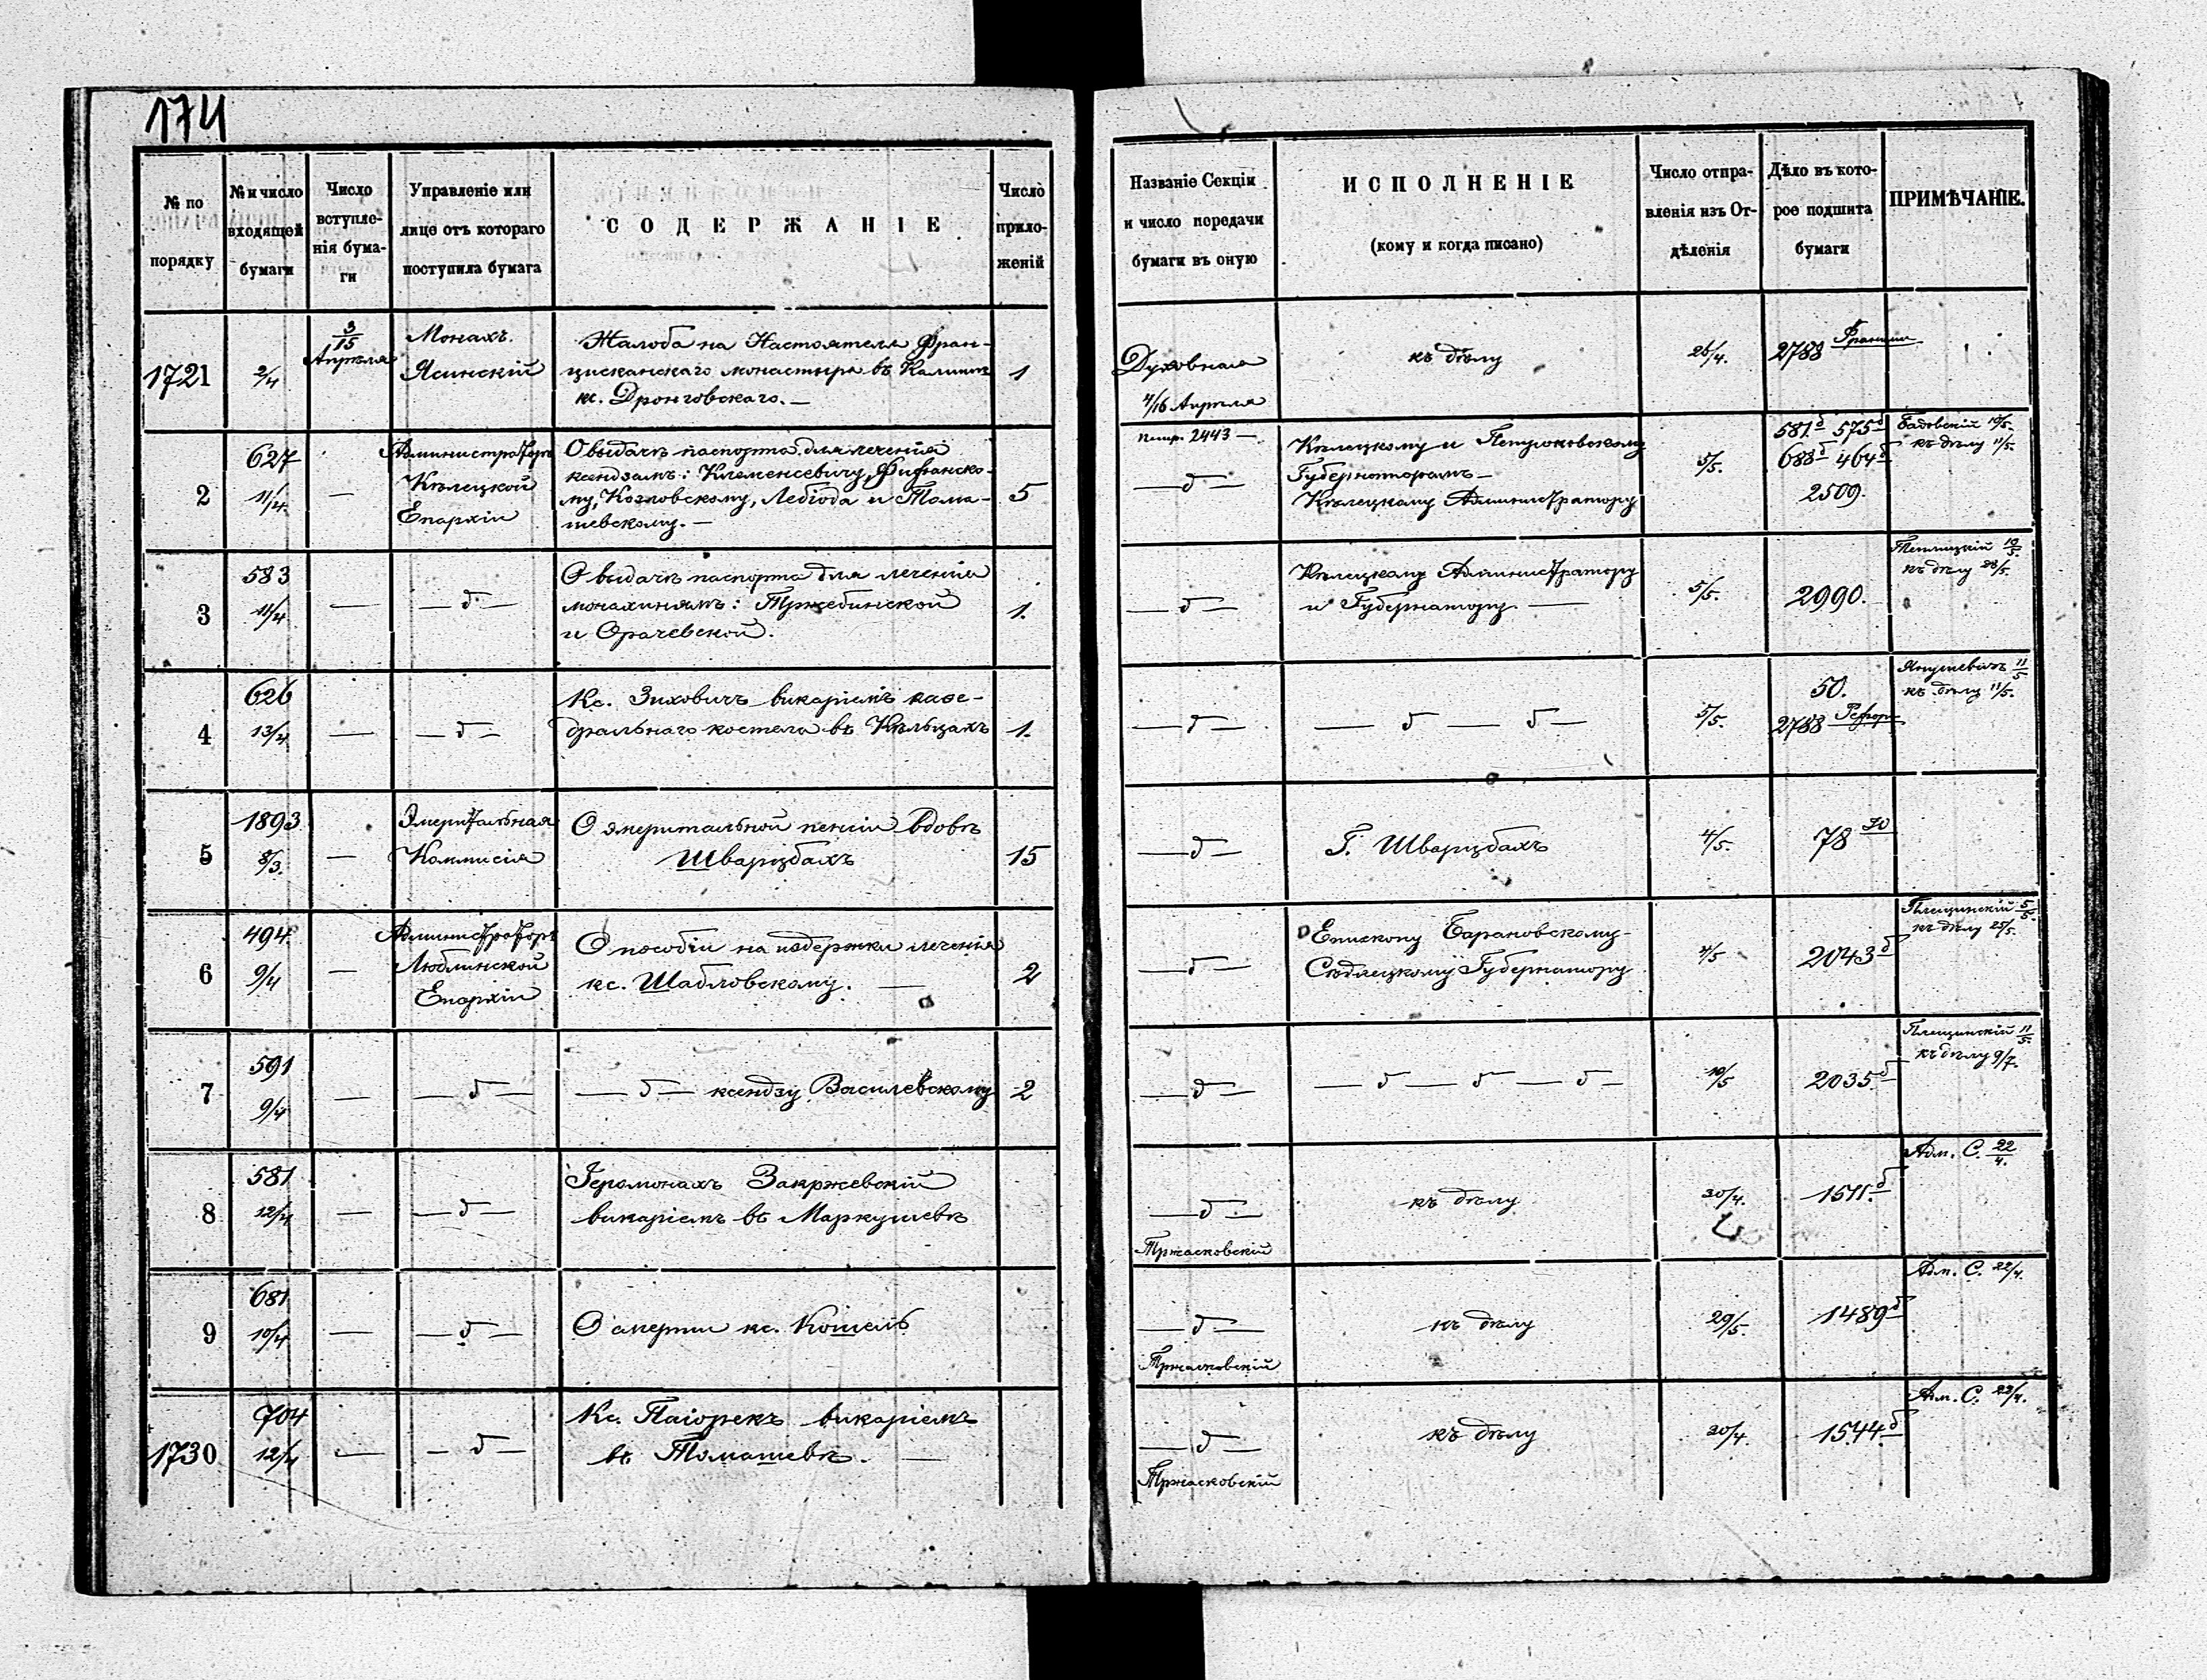 174
№ по порядку
№ и число входящей бумаги
Число вступле-
нія бума-
ги
Управленіе или
лице отъ котораго
поступила бумага
СОДЕРЖАНІЕ
Число
прило-
женій
Названіе Секціи
и число передачи
бумаги въ оную
ИСПОЛНЕНІЕ
(кому и когда писано)
Число отпра-
вленія изъ От-
дѣленія
Дѣло въ кото-
рое подшита
бумаги
ПРИМѢЧАНІЕ.
1721
2/4
3/15
Апрѣля
Монахъ
Ясинскій
Жалоба на Настоятеля Фран-
цисканскаго монастыря въ Калишѣ
кс. Дронговскаго. —
1
Духовная
4/16 Апрѣля
къ дѣлу
26/4.
2788
2
627
11/4
—
Администраторъ
Кѣлецкой
Епархіи
О выдачѣ паспорта для леченія
ксендзамъ: Клеменсевичу, Фифанско-
му, Козловскому, Лебіода и Тома-
шевскому. —
5
2443 —
— д —
Кѣлецкому и Петроковскому
Губернаторамъ —
Кѣлецкому Администратору
5/5.
581 д 575 д
688 д 464 д
2509.
къ дѣлу 11/5.
3
583
11/4
—
— д —
О выдачѣ паспорта для леченія
монахинямъ: Тржебинской
и Орачевской.
1.
— д —
Кѣлецкому Администратору
и Губернатору —
5/5.
2990.
къ дѣлу 28/5.
4
626
13/4
—
— д —
Кс. Зиховичъ викаріемъ каѳе-
дральнаго костела въ Кѣльцахъ
1.
— д —
— д — д —
5/5.
50.
2788
Янушевичъ 11/5
къ дѣлу 11/5.
5
1893
8/3.
—
Эмеритальная
Коммисія
О эмеритальной пенсіи вдовѣ
Шварцбахъ
15
— д —
Г. Шварцбахъ
4/5.
78
6
494
9/4
—
Администраторъ
Люблинской
Епархіи
О пособіи на издержки леченія
кс. Шабловскому. —
2
— д —
Епископу Барановскому-
Сѣдлецкому Губернатору
4/5
2043 д
Плещинскій 5/5.
къ дѣлу 25/5.
7
591
9/4
—
— д —
— д — ксендзу Василевскому
2
— д —
— д — д — д —
10/5
2035 д
Плещинскій 11/5.
къ дѣлу 9/7.
8
581
12/4
—
— д —
Іеромонахъ Закржевскій
викаріемъ въ Маркушевѣ
— д —
Тржасковскій
къ дѣлу
30/4.
1511 д
Адм. С. 22/4.
9
681
10/4
—
— д —
О смерти кс. Кошель
— д —
Тржасковскій
къ дѣлу
29/5.
1489 д
Адм. С. 22/4.
1730
704
12/4
—
— д —
Кс. Паіорекъ викаріемъ
въ Томашевѣ. —
— д —
Тржасковскій
къ дѣлу
30/4.
1544 д
Адм. С. 22/4.